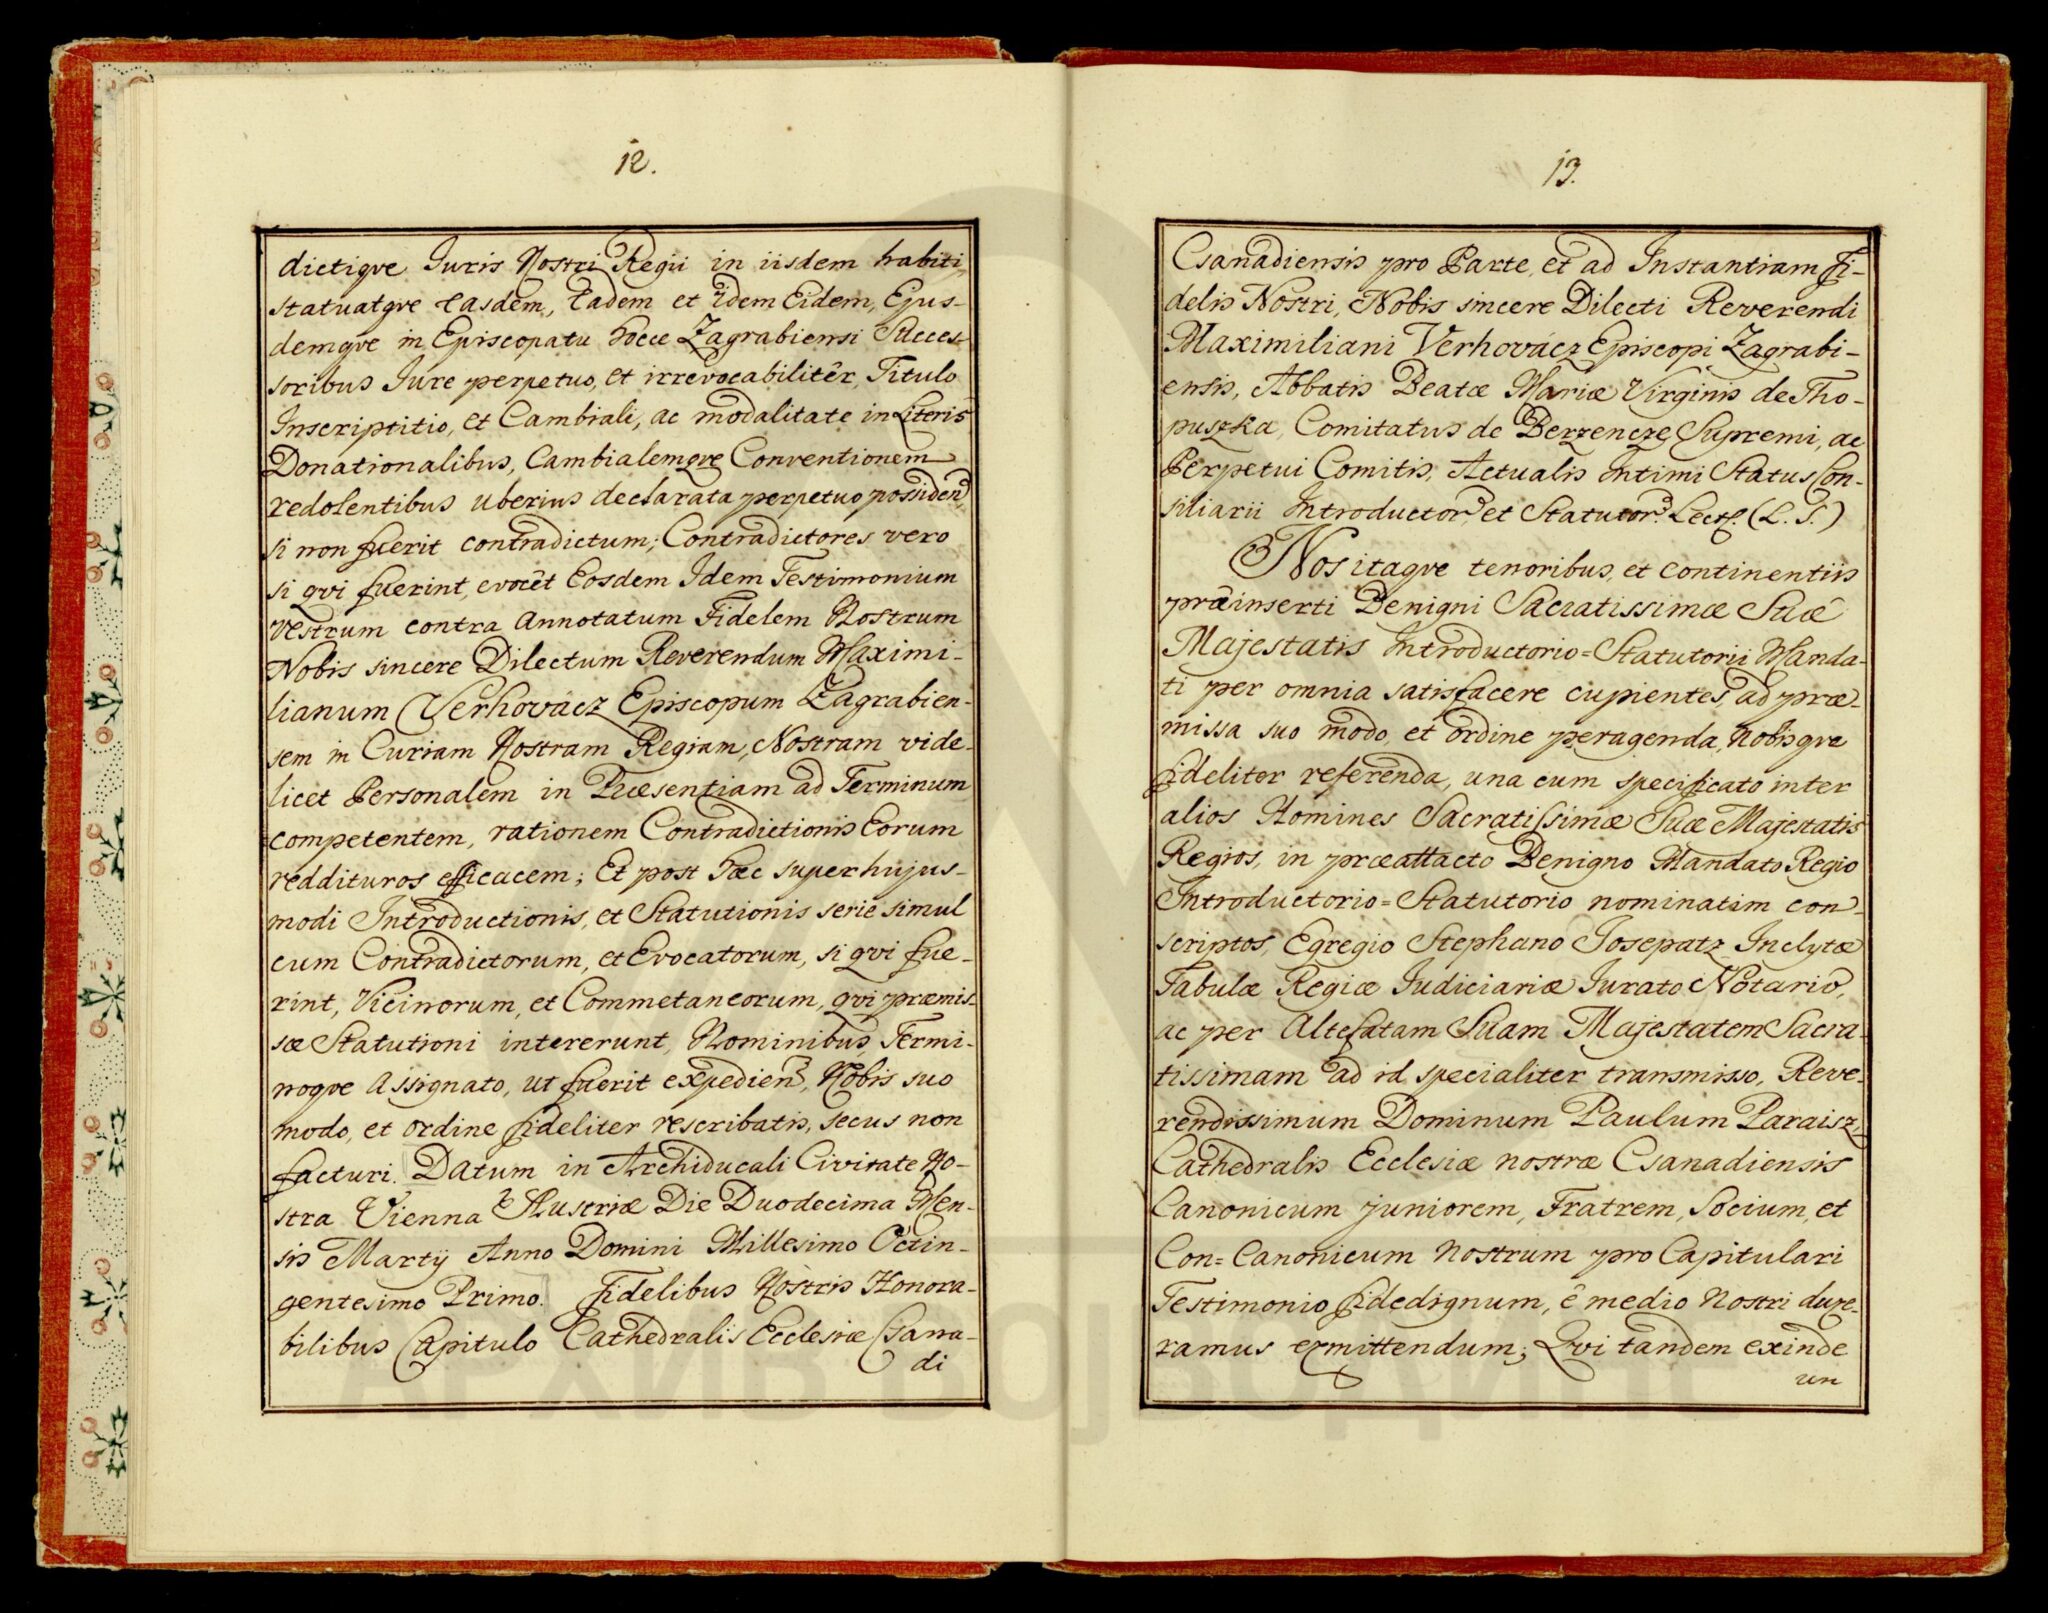 12.
dictiqve Juris Nostri Regii in iisdem habiti,
statuatqve easdem, Eadem et Idem Eidem, Ejus-
demqve in Episcopatu hocce Zagrabiensi Succes-
soribus Jure perpetuo, et irrevocabilitêr, Titulo
Inscriptitio, et Cambiali, ac modalitate in Literis
Donationalibus, Cambialemqve Conventionem
redolentibus uberius declarata perpetuo possiden,
si non fuerit contradictum; Contradictores vero
si qvi fuerint, evocêt Eosdem Idem Testimonium
vestrum contra Annotatum Fidelem Nostrum
Nobis sincere Dilectum Reverendum Maximi-
lianum Verhovácz Episcopum Zagrabien-
sem in Curiam Nostram Regiam, Nostram vide-
licet Personalem in Præsentiam ad Terminum
competentem, rationem Contradictionis Eorum
reddituros efficacem; Et post hæc super hujus-
modi Introductionis, et Statutionis serie simul
cum Contradictorum, et Evocatorum, si qvi fue-
rint, Vicinorum, et Commetaneorum, qvi præmis-
sæ Statutioni intererunt, Nominibus, Termi-
noqve Assignato, ut fuerit expedien, Nobis suo
modo, et ordine fideliter rescribatis, secus non
facturi. Datum in Archiducali Civitate No-
stra Vienna Austriæ Die Duodecima Men-
sis Martij Anno Domini Millesimo Octin-
gentesimo Primo. Fidelibus Nostris Honora-
bilibus Capitulo Cathedralis Ecclesiæ Csana-
di
13.
Csanadiensis pro Parte, et ad Instantiam Fi-
delis Nostri, Nobis sincere Dilecti Reverendi
Maximiliani Verhovácz Episcopi Zagrabi-
ensis, Abbatis Beatæ Mariæ Virginis de Tho-
puszka, Comitatus de Berzencze Supremi, ac
Perpetui Comitis, Actualis Intimi Status Con-
siliarii Introductor, et Statutor. Lect. (L. S.)
Nos itaqve tenoribus, et continentiis
præinserti Benigni Sacratissimæ Suæ
Majestatis Introductorio=Statutorii Manda-
ti per omnia satisfacere cupientes, ad præ-
missa suo modo, et ordine peragenda, Nobisqve
fideliter referenda, una cum specificato inter
alios Homines Sacratissimæ Suæ Majestatis
Regios, in præattacto Benigno Mandato Regio
Introductorio=Statutorio nominatim con-
scriptos, Egregio Stephano Josepatz Inclytæ
Tabulæ Regiæ Judiciariæ Jurato Notario,
ac per Altefatam Suam Majestatem Sacra-
tissimam ad id specialiter transmisso, Reve-
rendissimum Dominum Paulum Paraisz,
Cathedralis Ecclesiæ nostræ Csanadiensis
Canonicum juniorem, Fratrem, Socium, et
Con=Canonicum Nostrum pro Capitulari
Testimonio fidedignum, ê medio Nostri duxe-
ramus exmittendum; Qvi tandem exinde
un
АРХИВ ВОЈВОДИНЕ